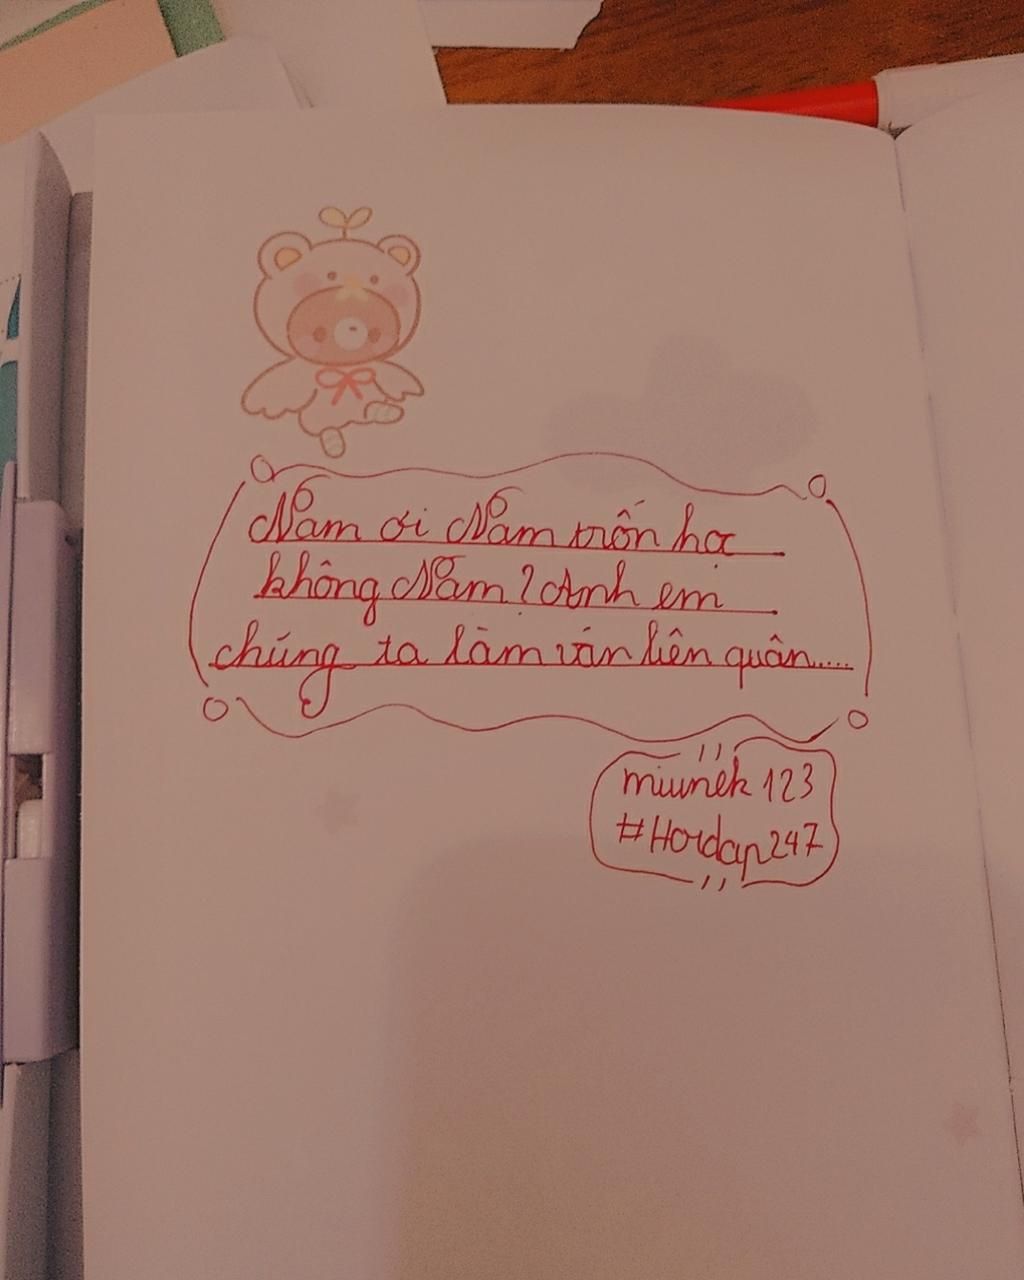 Nam ơi Nam trốn học
không Nam? Anh em
chúng ta làm ván liên quân....
miunek 123
#Hordap247